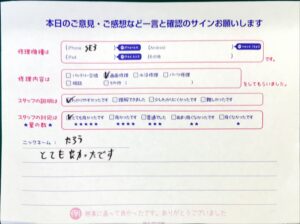 本日のご意見・ご感想など一言と確認のサインお願いします
修理機種は
iPhone SE3
Android
iPad
その他
修理内容は
バッテリー交換 画面修理 水没修理 パーツ修理
をしてもらいました。
スタッフの説明は
わかりやすかったです 理解できました 少しわかりにくかったです 難しかったです
スタッフの対応は
★星の数★
とても良かったです 良かったです 普通でした あまり良くなかったです 良くなかったです
★★★★★ ★★★★ ★★★ ★★ ★
ニックネーム: たろう
とても良かったです
修理に退って良かったです。ありがとうございました